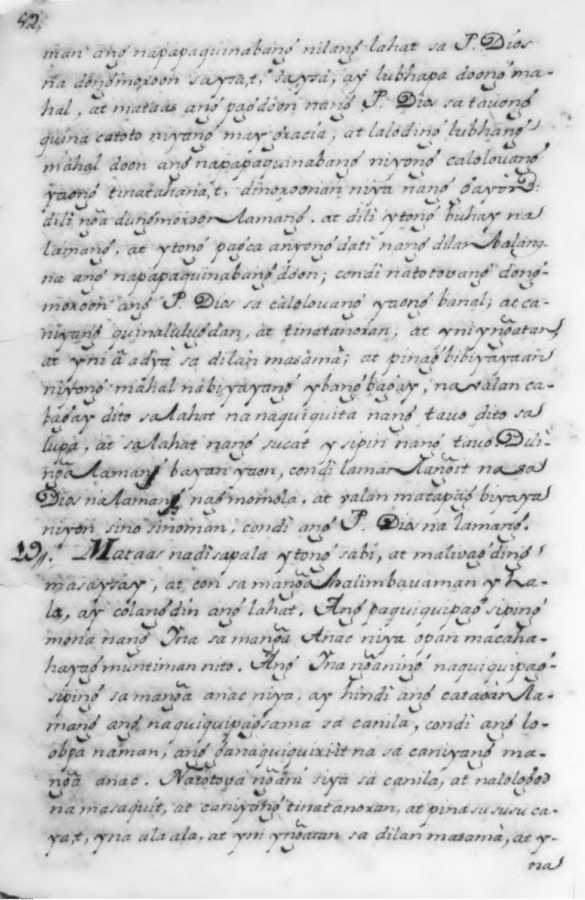 52.
man ang napapaquinabang nilang lahat sa P. Dios
na dongmoroon sa yta,t, sa yta, ay lubhapa doong ma-
hal, at mataas ang pagdoon nang P. Dios sa tauong
quina catoto niyang may gracia, at lalo ding lubhang
mahal doon ang napapaquinabang niyong calolouang
yaong tinatahana,t, dinoroonan niya nang gayon:
dili nga dungmoroon lamang. at dili ytong buhay na
lamang. at ytong pagca anyong dati nang dilan
na ang napapaquinabang doon; condi natotouang dong-
moroon ang P. Dios sa calolouang yaong banal; at ca-
niyang quinalulugdan, at tinatanoran; at yni yngatan,
at yni a adya sa dilan masama; at pinag bibiyayaan
niyong mahal na biyayang ybang bagay, na ualan ca-
bagay dito sa lahat na naquiquita nang tauo dito sa
lupa, at sa lahat nang sucat ysipin nang tauo. Dili
nga lamang bayan yaon, condi lamar langit na sa
Dios na lamang nag momola, at ualan macapag biyaya
niyon sino sinoman, condi ang P. Dios na lamang.
19. Mataas na di sapala ytong sabi, at maliuag ding
masaysay, at con sa manga halimbauaman y ha-
la, ay colang din ang lahat. Ang paquiquipag siping
mona nang Yna sa manga Anac niya opan macaha-
hayag muntiman nito. Ang Yna nganing naquiquipag-
siping sa manga anac niya. ay hindi ang catauan la-
mang ang naquiquipagsama sa canila, condi ang lo-
obpa naman, ang
nga anac. Natotoua ngani siya sa canila, at nalologod
na masaquit, at caniyang tinatanoran, at pina su susu ca-
ya,t, yna ala ala, at yni yngatan sa dilan masama, at y-
na